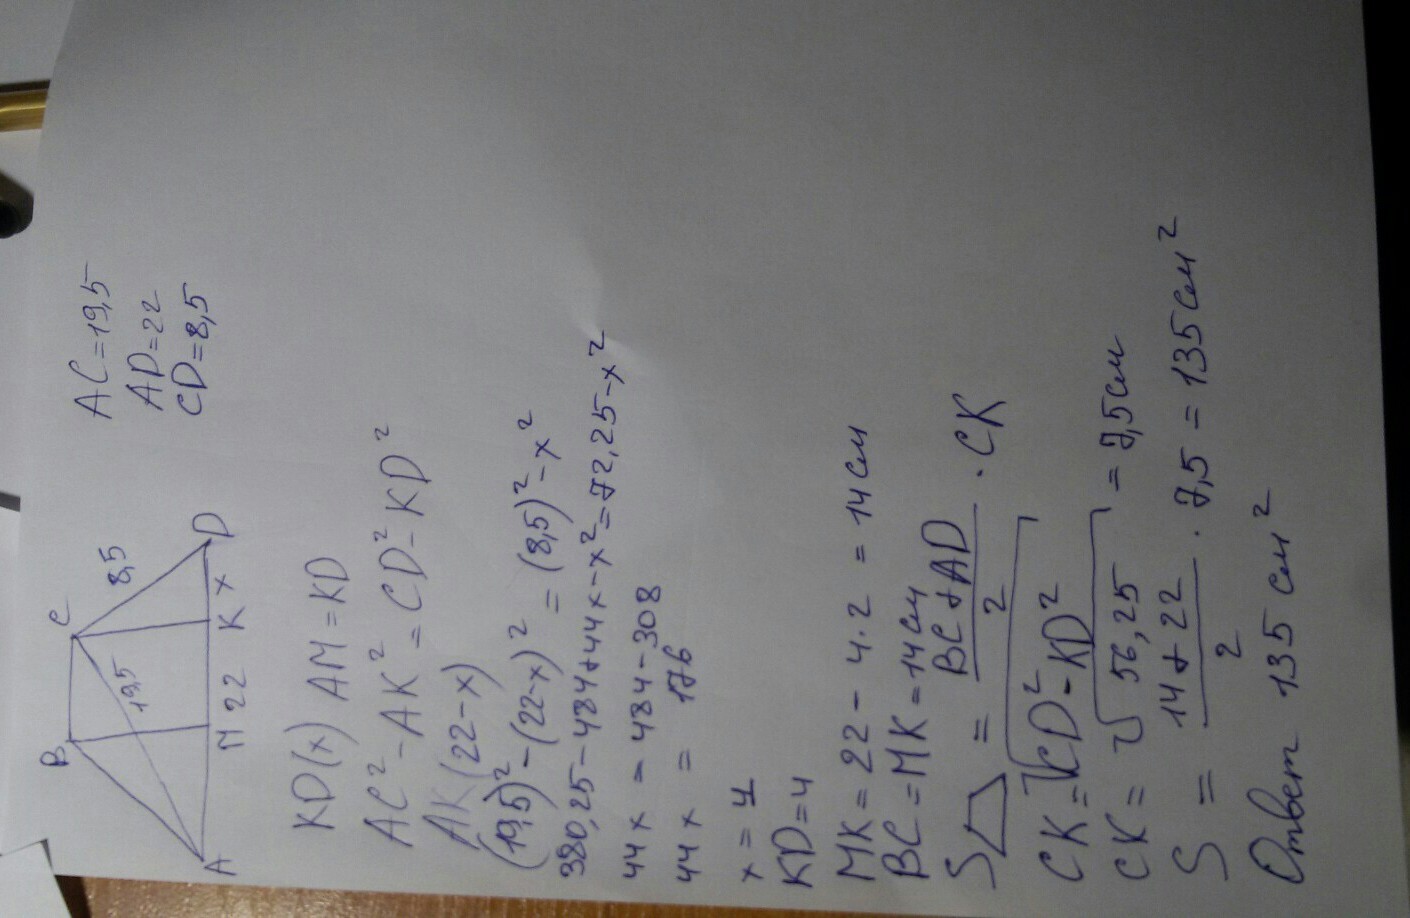 B C
8,5
19,5
A M 22 K x D
AC=19,5
AD=22
CD=8,5
KD(x) AM=KD
AC²-AK²=CD²-KD²
AK(22-x)
(19,5)²-(22-x)²=(8,5)²-x²
380,25-484+44x-x²=72,25-x²
44x=484-308
44x=176
x=4
KD=4
MK=22-4·2=14см
BC=MK=14см
S=BC+AD/2·CK
CK=√CD²-KD²
CK=√56,25=7,5см
S=14+22/2·7,5=135см²
Ответ 135 см²